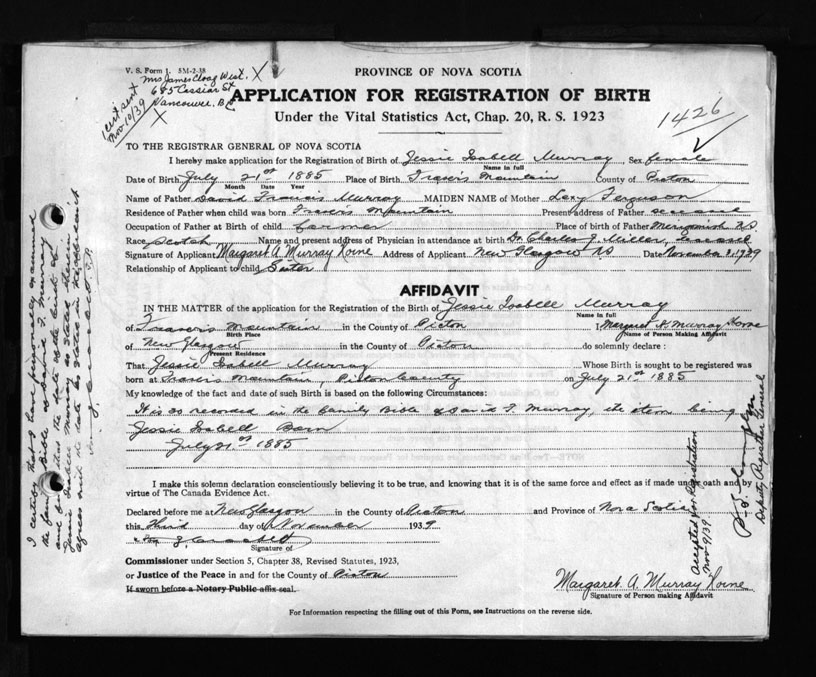 V. S. Form 1. 5M-2-38
Mrs James Cloag West. X
685 Cassiar St
Vancouver. B C
X
1 cert sent
Nov. 10/39
PROVINCE OF NOVA SCOTIA
APPLICATION FOR REGISTRATION OF BIRTH
Under the Vital Statistics Act, Chap. 20, R. S. 1923
1426
TO THE REGISTRAR GENERAL OF NOVA SCOTIA
I hereby make application for the Registration of Birth of Jessie Isabell Murray, Sex female
Name in full
Date of Birth July 21st 1885 Place of Birth Fraser's Mountain County of Pictou
Month Date Year
Name of Father David Francis Murray MAIDEN NAME of Mother Lexy Ferguson
Residence of Father when child was born Frasers Mountain Present address of Father deceased
Occupation of Father at Birth of child farmer Place of birth of Father Merigomish N.S.
Race Scotch Name and present address of Physician in attendance at birth Dr. Charles J. Miller, deceased
Signature of Applicant Margaret A Murray Horne Address of Applicant New Glasgow NS Date November 3, 1939
Relationship of Applicant to child Sister
AFFIDAVIT
IN THE MATTER of the application for the Registration of the Birth of Jessie Isabell Murray
Name in full
of Frasers Mountain in the County of Pictou I, Margaret A. Murray Horne
Birth Place Name of Person Making Affidavit
of New Glasgow in the County of Pictou do solemnly declare :
Present Residence
That Jessie Isabell Murray Whose Birth is sought to be registered was
born at Frasers Mountain, Pictou County on July 21st 1885
My knowledge of the fact and date of such Birth is based on the following Circumstances:
It is so recorded in the family Bible of David F. Murray, the item being
Jessie Isabell Born
July 21st 1885
I make this solemn declaration conscientiously believing it to be true, and knowing that it is of the same force and effect as if made under oath and by
virtue of The Canada Evidence Act.
Declared before me at New Glasgow in the County of Pictou and Province of Nova Scotia
this third day of November 1939
Signature of
Commissioner under Section 5, Chapter 38, Revised Statutes, 1923,
or Justice of the Peace in and for the County of Pictou
If sworn before a Notary Public affix seal.
Margaret A. Murray Horne
Signature of Person making Affidavit
For Information respecting the filling out of this Form, see Instructions on the reverse side.
I certify that I have personally examined
the family Bible of David F. Murray
and find that the date of birth of
Jessie Isabell Murray as stated therein
agrees with the date as stated in this affidavit
Accepted for Registration
Nov 9/39
Deputy Registrar General